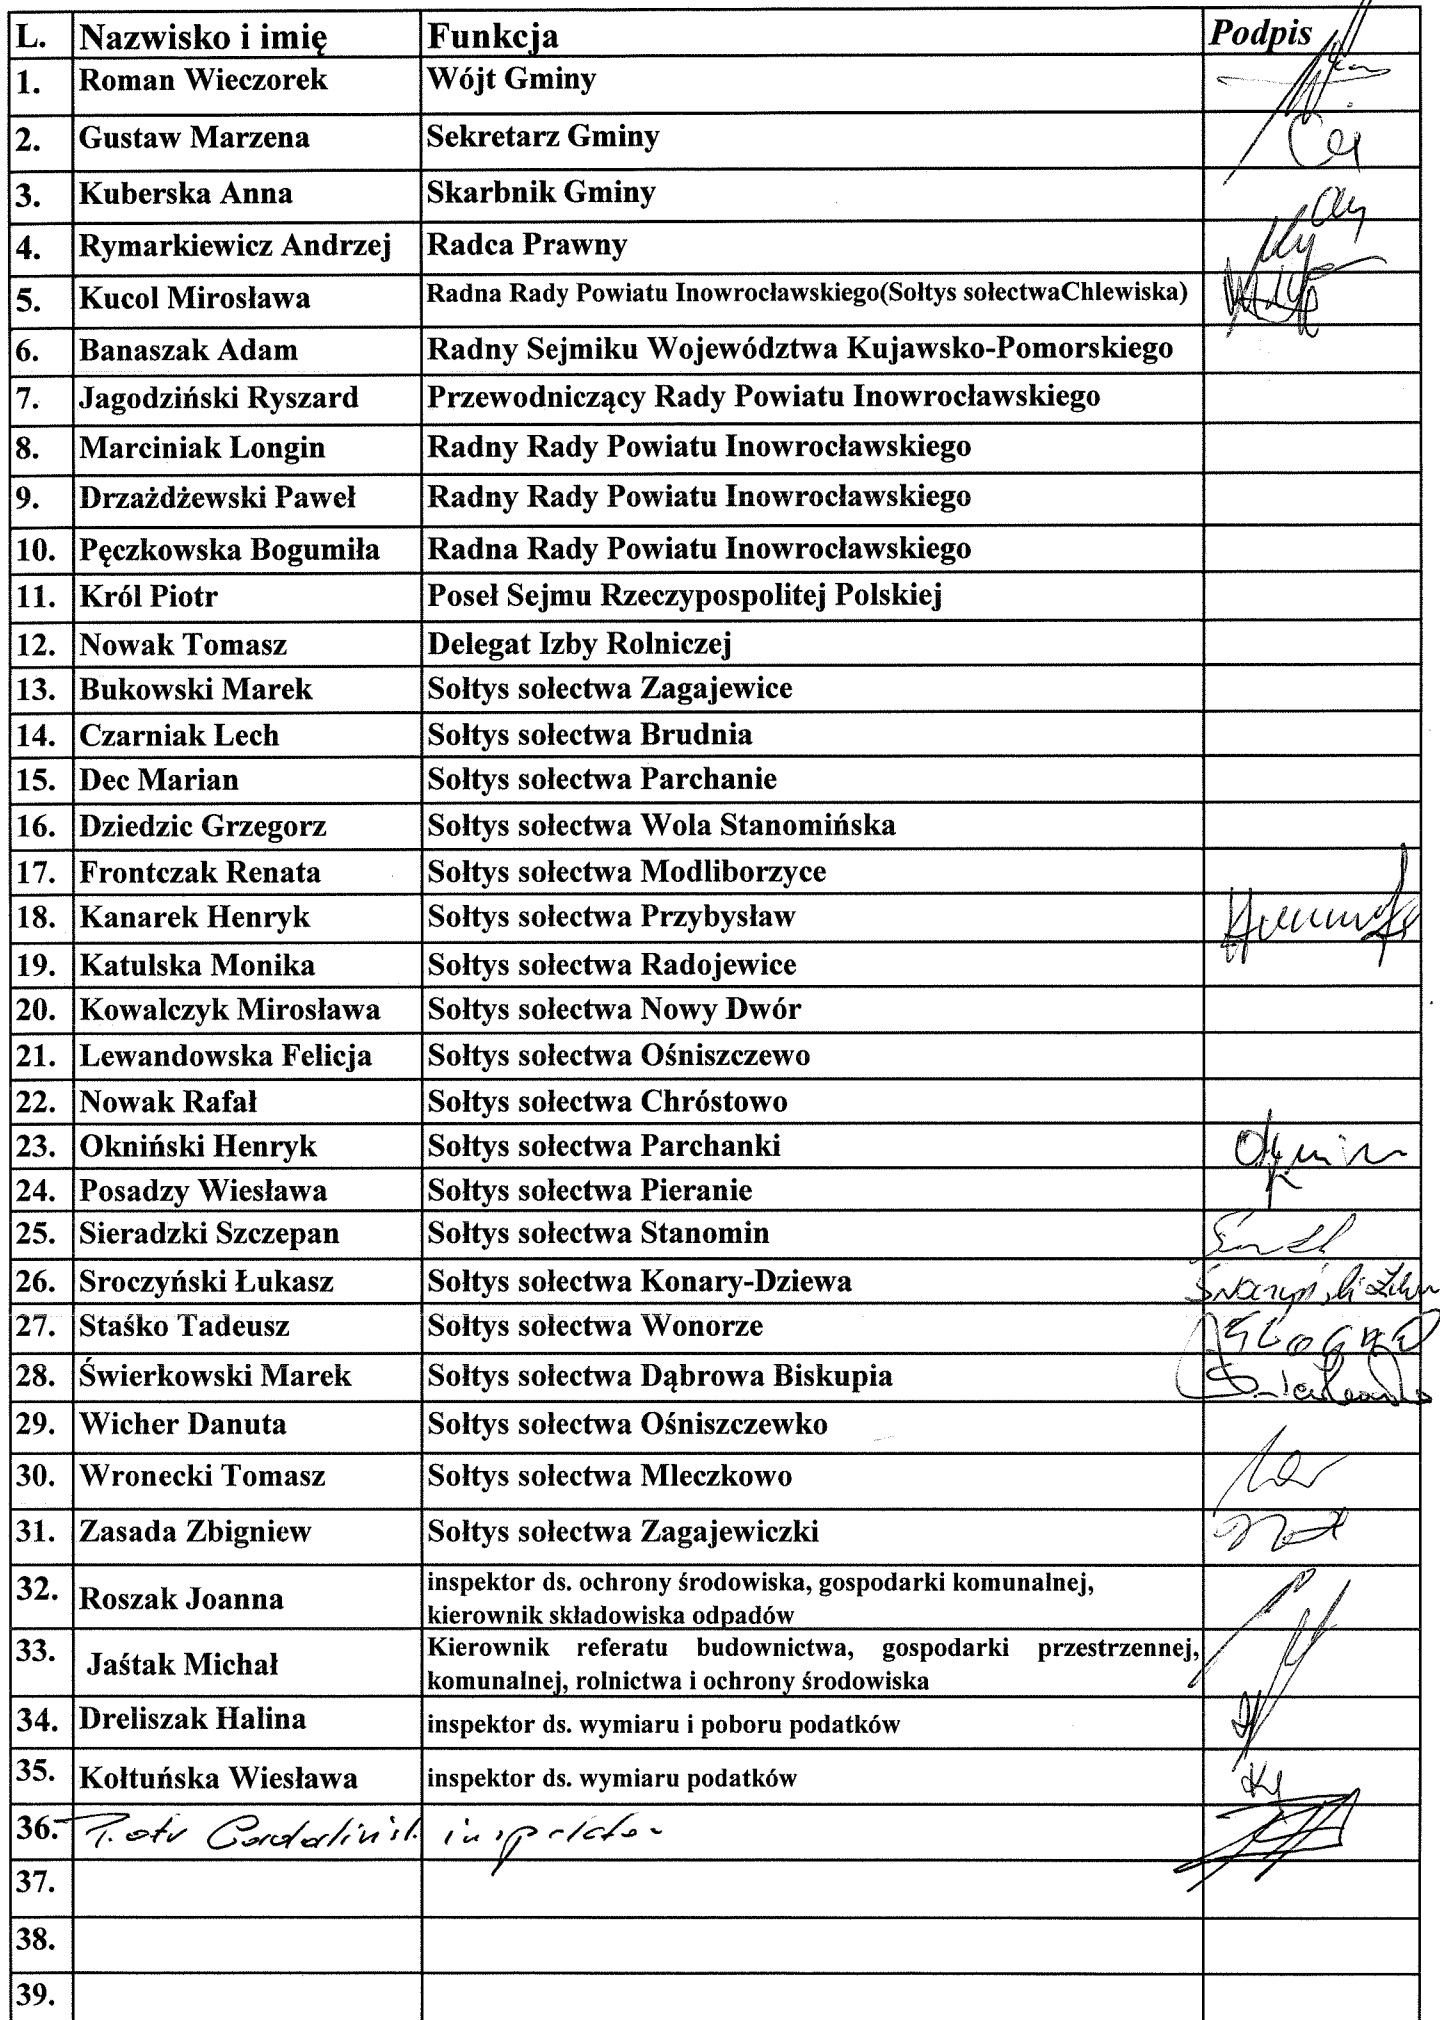 L. Nazwisko i imię Funkcja Podpis
1. Roman Wieczorek Wójt Gminy
2. Gustaw Marzena Sekretarz Gminy
3. Kuberska Anna Skarbnik Gminy
4. Rymarkiewicz Andrzej Radca Prawny
5. Kucol Mirosława Radna Rady Powiatu Inowrocławskiego(Sołtys sołectwaChlewiska)
6. Banaszak Adam Radny Sejmiku Województwa Kujawsko-Pomorskiego
7. Jagodziński Ryszard Przewodniczący Rady Powiatu Inowrocławskiego
8. Marciniak Longin Radny Rady Powiatu Inowrocławskiego
9. Drzażdżewski Paweł Radny Rady Powiatu Inowrocławskiego
10. Pęczkowska Bogumiła Radna Rady Powiatu Inowrocławskiego
11. Król Piotr Poseł Sejmu Rzeczypospolitej Polskiej
12. Nowak Tomasz Delegat Izby Rolniczej
13. Bukowski Marek Sołtys sołectwa Zagajewice
14. Czarniak Lech Sołtys sołectwa Brudnia
15. Dec Marian Sołtys sołectwa Parchanie
16. Dziedzic Grzegorz Sołtys sołectwa Wola Stanomińska
17. Frontczak Renata Sołtys sołectwa Modliborzyce
18. Kanarek Henryk Sołtys sołectwa Przybysław
19. Katulska Monika Sołtys sołectwa Radojewice
20. Kowalczyk Mirosława Sołtys sołectwa Nowy Dwór
21. Lewandowska Felicja Sołtys sołectwa Ośniszczewo
22. Nowak Rafał Sołtys sołectwa Chróstowo
23. Okniński Henryk Sołtys sołectwa Parchanki
24. Posadzy Wiesława Sołtys sołectwa Pieranie
25. Sieradzki Szczepan Sołtys sołectwa Stanomin
26. Sroczyński Łukasz Sołtys sołectwa Konary-Dziewa
27. Staśko Tadeusz Sołtys sołectwa Wonorze
28. Świerkowski Marek Sołtys sołectwa Dąbrowa Biskupia
29. Wicher Danuta Sołtys sołectwa Ośniszczewko
30. Wronecki Tomasz Sołtys sołectwa Mleczkowo
31. Zasada Zbigniew Sołtys sołectwa Zagajewiczki
32. Roszak Joanna inspektor ds. ochrony środowiska, gospodarki komunalnej,
kierownik składowiska odpadów
33. Jaśtak Michał Kierownik referatu budownictwa, gospodarki przestrzennej,
komunalnej, rolnictwa i ochrony środowiska
34. Dreliszak Halina inspektor ds. wymiaru i poboru podatków
35. Kołtuńska Wiesława inspektor ds. wymiaru podatków
36. Piotr inspektor
37.
38.
39.